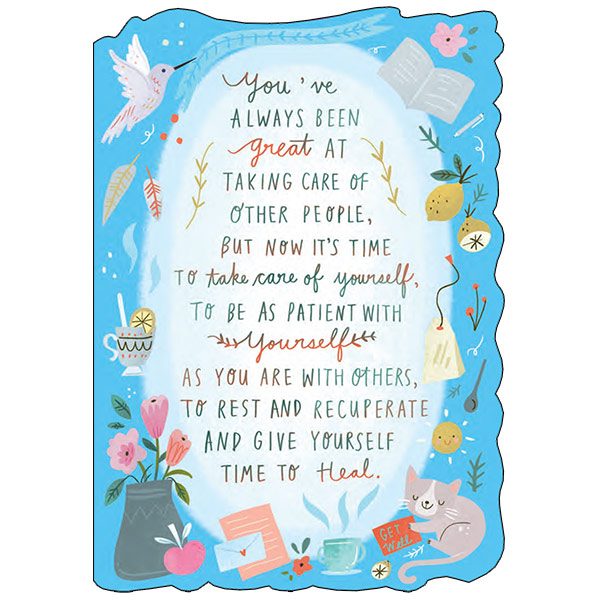 You've
ALWAYS BEEN
great AT
TAKING CARE OF
OTHER PEOPLE,
BUT NOW IT'S TIME
TO take care of yourself,
TO BE AS PATIENT WITH
Yourself
AS YOU ARE WITH OTHERS,
TO REST AND RECUPERATE
AND GIVE YOURSELF
TIME TO Heal.
GET
Well